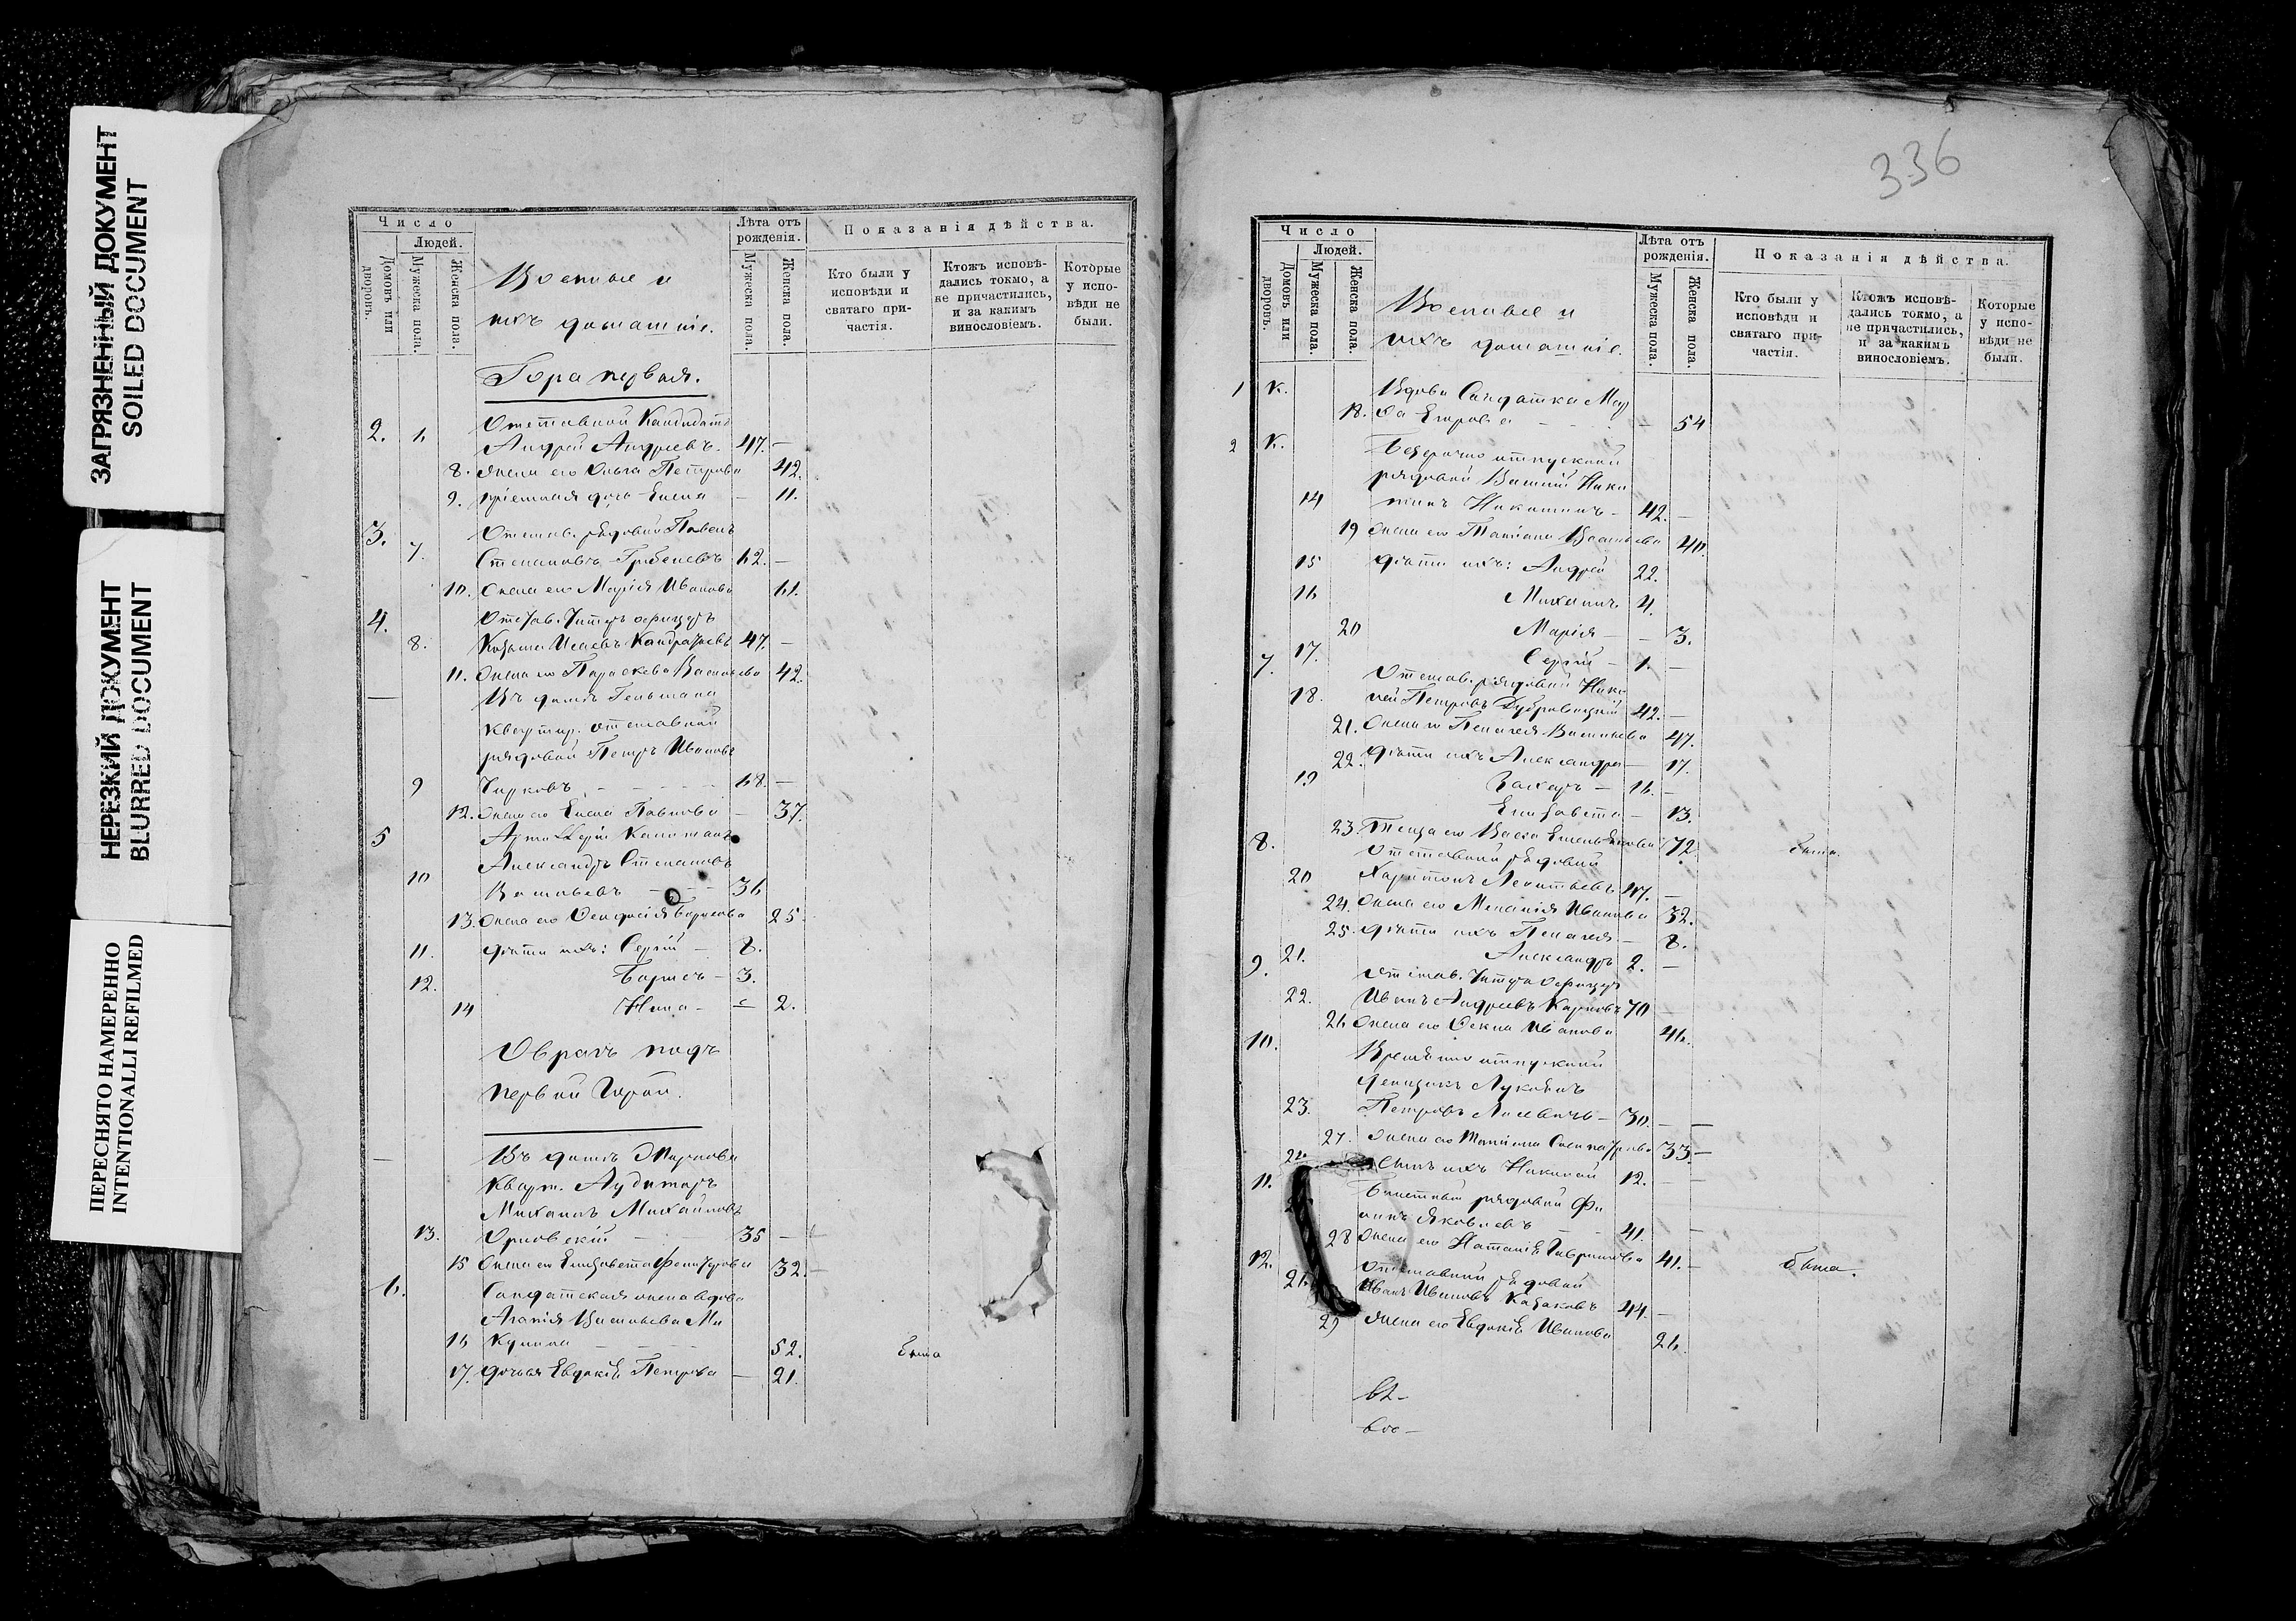 ЗАГРЯЗНЕННЫЙ ДОКУМЕНТ
SOILED DOCUMENT
НЕРЕЗКИЙ ДОКУМЕНТ
BLURRED DOCUMENT
ПЕРЕСНЯТО НАМЕРЕННО
INTENTIONALLI REFILMED
Число
Людей.
Домовъ или дворовъ.
Мужеска пола.
Женска пола.
Военные и
ихъ домашніе.
Лѣта отъ рожденія.
Мужеска пола.
Женска пола.
Показанія дѣйства.
Кто были у исповѣди и святаго причастія.
Ктожъ исповѣдались токмо, а не причастились, и за какимъ винословіемъ.
Которые у исповѣди не были.
Гора первая.
Отставной Кандидатъ
2. Андрей Андреевъ. 47. —
8. Жена его Ольга Петрова 42.
9. пріемная дочь Елена — 11.
3. Отстав. рядовой Павелъ
7. Степановъ 62. —
10. Жена его Марія Иванова 61.
4. Отстав. Унтеръ офицеръ
8. Козьма Исаевъ Кондратьевъ 47. —
11. Жена его Параскева Васильева 42.
— Въ домѣ
квартир. отставной
рядовой Петръ Ивановъ
9 68. —
12. Жена его Елена Павлова — 37.
5 Капитанъ
Александръ Степановъ
10 Васильевъ — 36
13. Жена его 25.
11. дѣти ихъ: Сергій — 8.
12. Борисъ — 3.
14 Нина — 2.
Оврагъ подъ
первой Горой.
— Въ домѣ
Кварт. Аудиторъ
Михаилъ Михайловъ
13. Орловскій — 35 —
15 Жена его Елизавета 32. —
6. Солдатская жена вдова
Агапія Васильева
16 52. была
17. дочь ея Евдокія Петрова — 21.
336
Число
Людей.
Домовъ или дворовъ.
Мужеска пола.
Женска пола.
Военные и
ихъ домашніе.
Лѣта отъ рожденія.
Мужеска пола.
Женска пола.
Показанія дѣйства.
Кто были у исповѣди и святаго причастія.
Ктожъ исповѣдались токмо, а не причастились, и за какимъ винословіемъ.
Которые у исповѣди не были.
1 К. Вдова Солдатка
18. Егорова 54
2 К. Безсрочно отпускной
рядовой Ники
14 тинъ 42. —
19 Жена его Татіана Васильева 40.
15 дѣти ихъ: Андрей 22.
16 Михаилъ 4.
20 Марія — 3.
17. Сергій — 1. —
7. Отстав. рядовой Нико
18. лай Петровъ 42. —
21. Жена его Пелагея Васильева 47.
22. дѣти ихъ Александра — 17.
19 Захаръ — 16. —
Елизавета — 13.
23. Теща его 72. была.
8. Отставной рядовой
20 Харитонъ Леонтьевъ 47. —
24. Жена его Меланія Иванова 32.
25. дѣти ихъ Пелагея — 8.
21. Александръ 2. —
9. Отстав. Унтеръ Офицеръ
22. Иванъ Андреевъ Карповъ 70
26 Жена его Фекла Иванова 46.
10. Временно отпускной
деньщикъ
23. Петровъ — 30. —
27. Жена его Татіана 33. —
Сынъ ихъ Николай 12. —
11. Билетный рядовой Фи
липъ Яковлевъ 41. —
28 Жена его Наталія Гаврилова 41. — была.
12. Отставной рядовой
26 Иванъ Ивановъ Казаковъ 44. —
29 Жена его Евдокія Иванова 26.